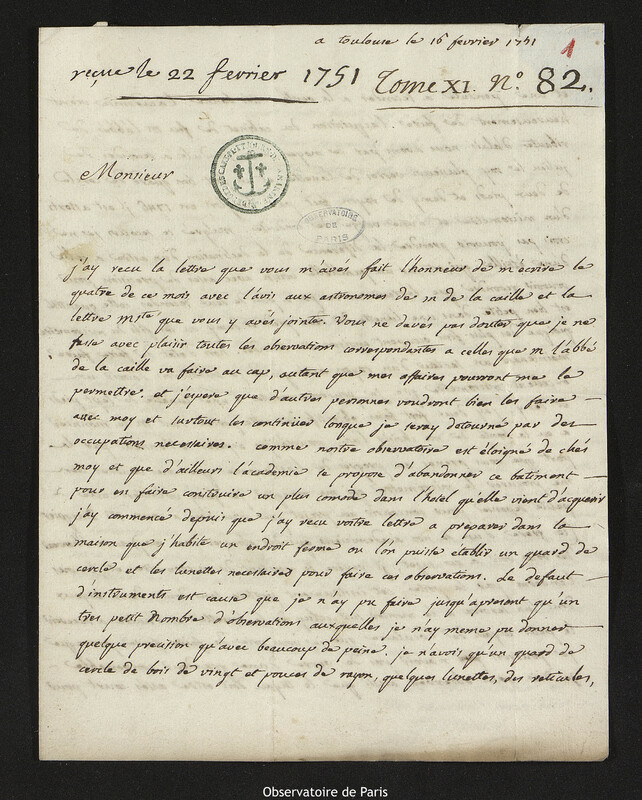 a toulouse le 16 fevrier 1751
1
reçue le 22 fevrier 1751 Tome XI. N° 82.
Monsieur
OBSERVATOIRE
DE
PARIS
j'ay recu la lettre que vous m'avés fait l'honneur de m'écrire le
quatre de ce mois avec l'avis aux astronomes de m de la caille et la
lettre mste que vous y avés jointe. Vous ne devés pas douter que je ne
fasse avec plaisir toutes les observations correspondantes a celles que m l'abbé
de la caille va faire au cap, autant que mes affaires pourront me le
permettre. et j'espere que d'autres personnes voudront bien les faire
avec moy et surtout les continüer lorsque je seray detourné par des
occupations necessaires. comme nostre observatoire est éloigné de chés
moy et que d'ailleurs l'académie se propose d'abandonner ce batiment
pour en faire construire un plus comode dans l'hotel qu'elle vient d'acquerir
j'ay commencé depuis que j'ay recu votre lettre a preparer dans la
maison que j'habite un endroit ferme ou l'on puisse etablir un quard de
cercle et les lunettes necessaires pour faire ces observations. Le defaut
d'instruments est cause que je n'ay pu faire jusqu'apresent qu'un
tres petit nombre d'observations auxquelles je n'ay meme pu donner
quelque precision qu'avec beaucoup de peine. je n'avois qu'un quard de
cercle de bois de vingt et pouces de rayon, quelques lunettes, des reticules,
Observatoire de Paris